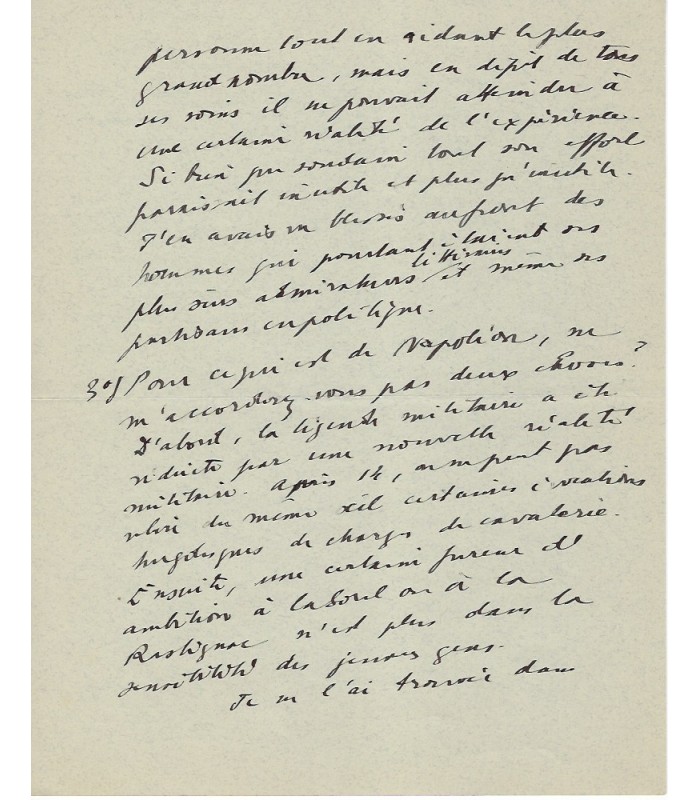 personne tout en aidant le plus
grand nombre, mais en dépit de tous
ses soins il ne pouvait atteindre à
une certaine réalité de l'expérience.
Si bien que soudain tout son effort
paraissait inutile et plus qu'inutile.
J'en avais vu blessés au front des
hommes qui pourtant étaient ses
plus sûrs admirateurs littéraires et même ses
partisans en politique.
3°) Pour ce qui est de Napoléon, ne
m'accorderez-vous pas deux choses?
D'abord, la légende militaire a été
réduite par une nouvelle réalité
militaire. Après 14, on ne peut pas
relire du même œil certaines évocations
hugolesques de charges de cavalerie.
Ensuite, une certaine fureur d'
ambition à la Sorel ou à la
Rastignac n'est plus dans la
sensibilité des jeunes gens.
Je ne l'ai trouvée dans